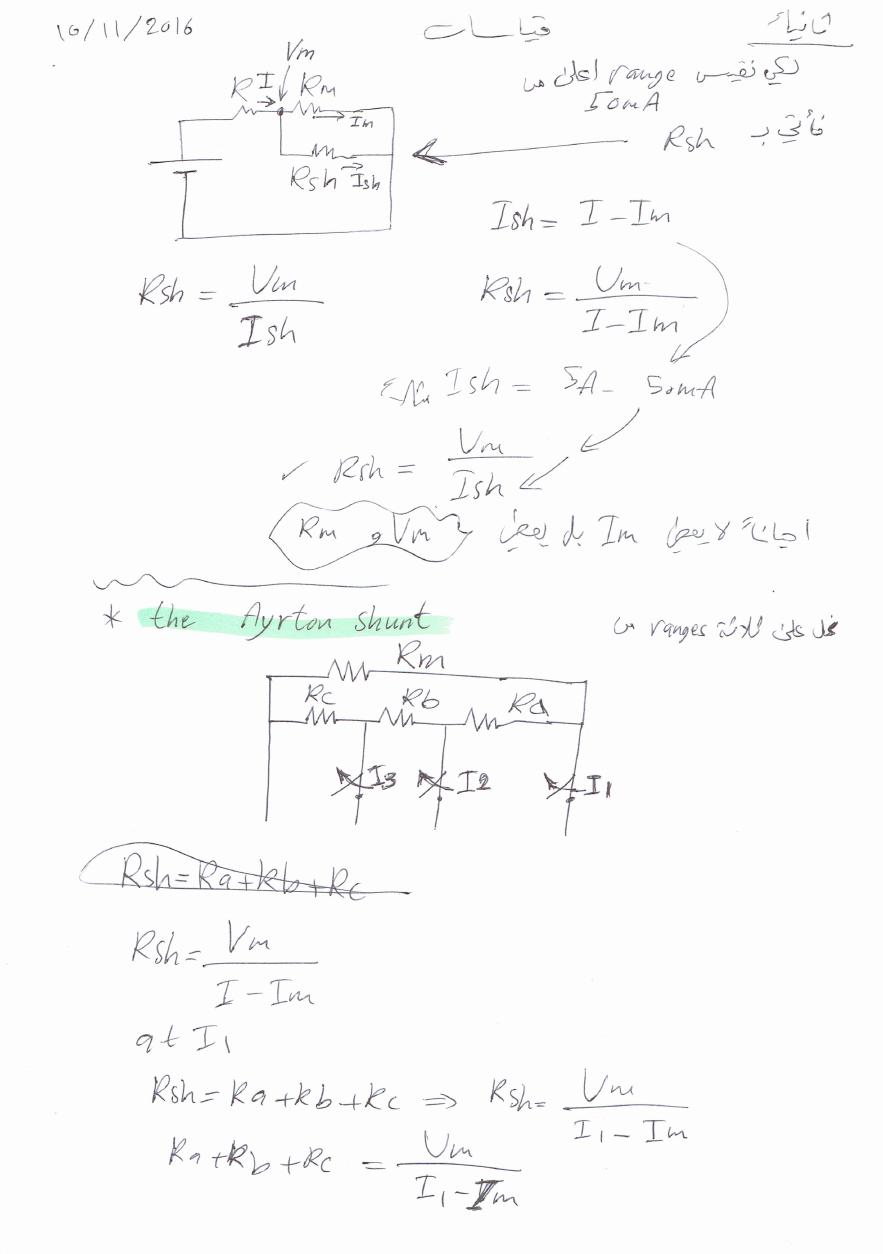 10/11/2016 قياسات ثانياً
لكي نقيس range اعلى من
50mA
Vm
R I Rm
Im
Rsh Ish
Rsh
Ish = I - Im
Rsh = Vm / Ish
Rsh = Vm / I - Im
Ish = 5A - 50mA
✓ Rsh = Vm / Ish
احياناً لا يعطي Im بل يعطي Vm و Rm
* the Ayrton shunt
ثلاثة ranges
Rm
Rc Rb Ra
I3 I2 I1
Rsh = Ra + Rb + Rc
Rsh = Vm / I - Im
at I1
Rsh = Ra + Rb + Rc ⇒ Rsh = Vm / I1 - Im
Ra + Rb + Rc = Vm / I1 - Im